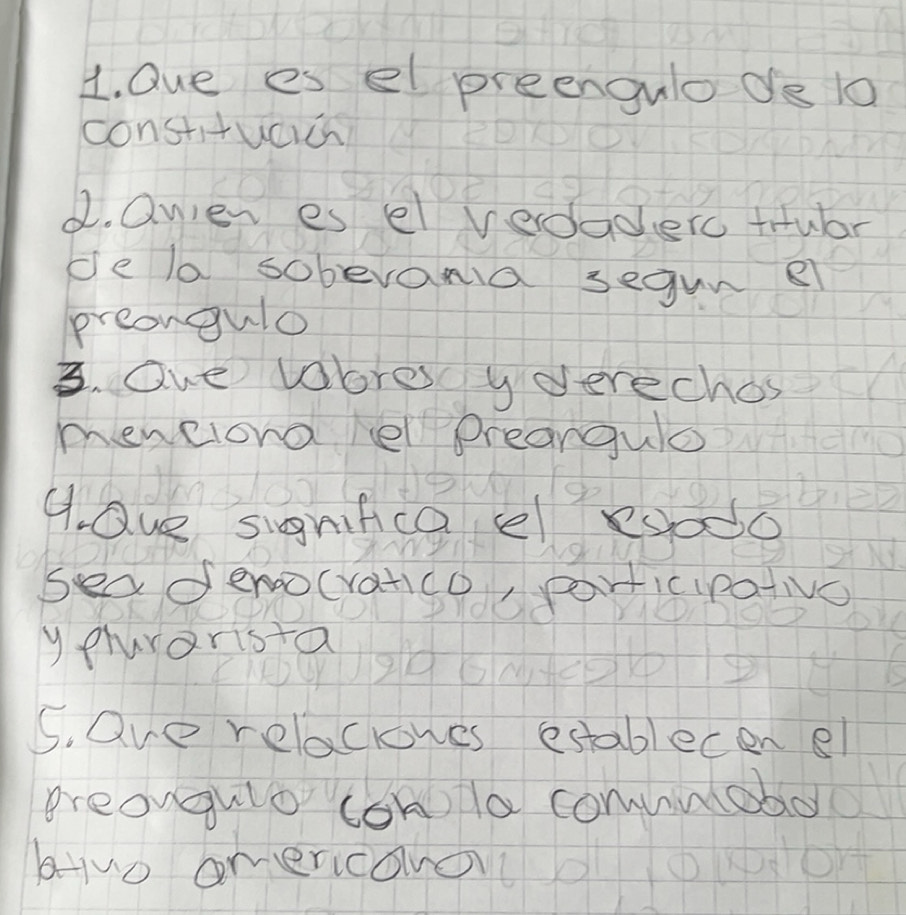 1. Que es el preengulo de la
constitución
2. Quien es el verdadero titular
de la soberania segun el
preongulo
3. Que valores y derechos
menciona el Preangulo
4. Que significa el esado
sea democratico, participativo
y plurarista
5. Que relaciones establecen el
preongulo con la comunidad
latino americana